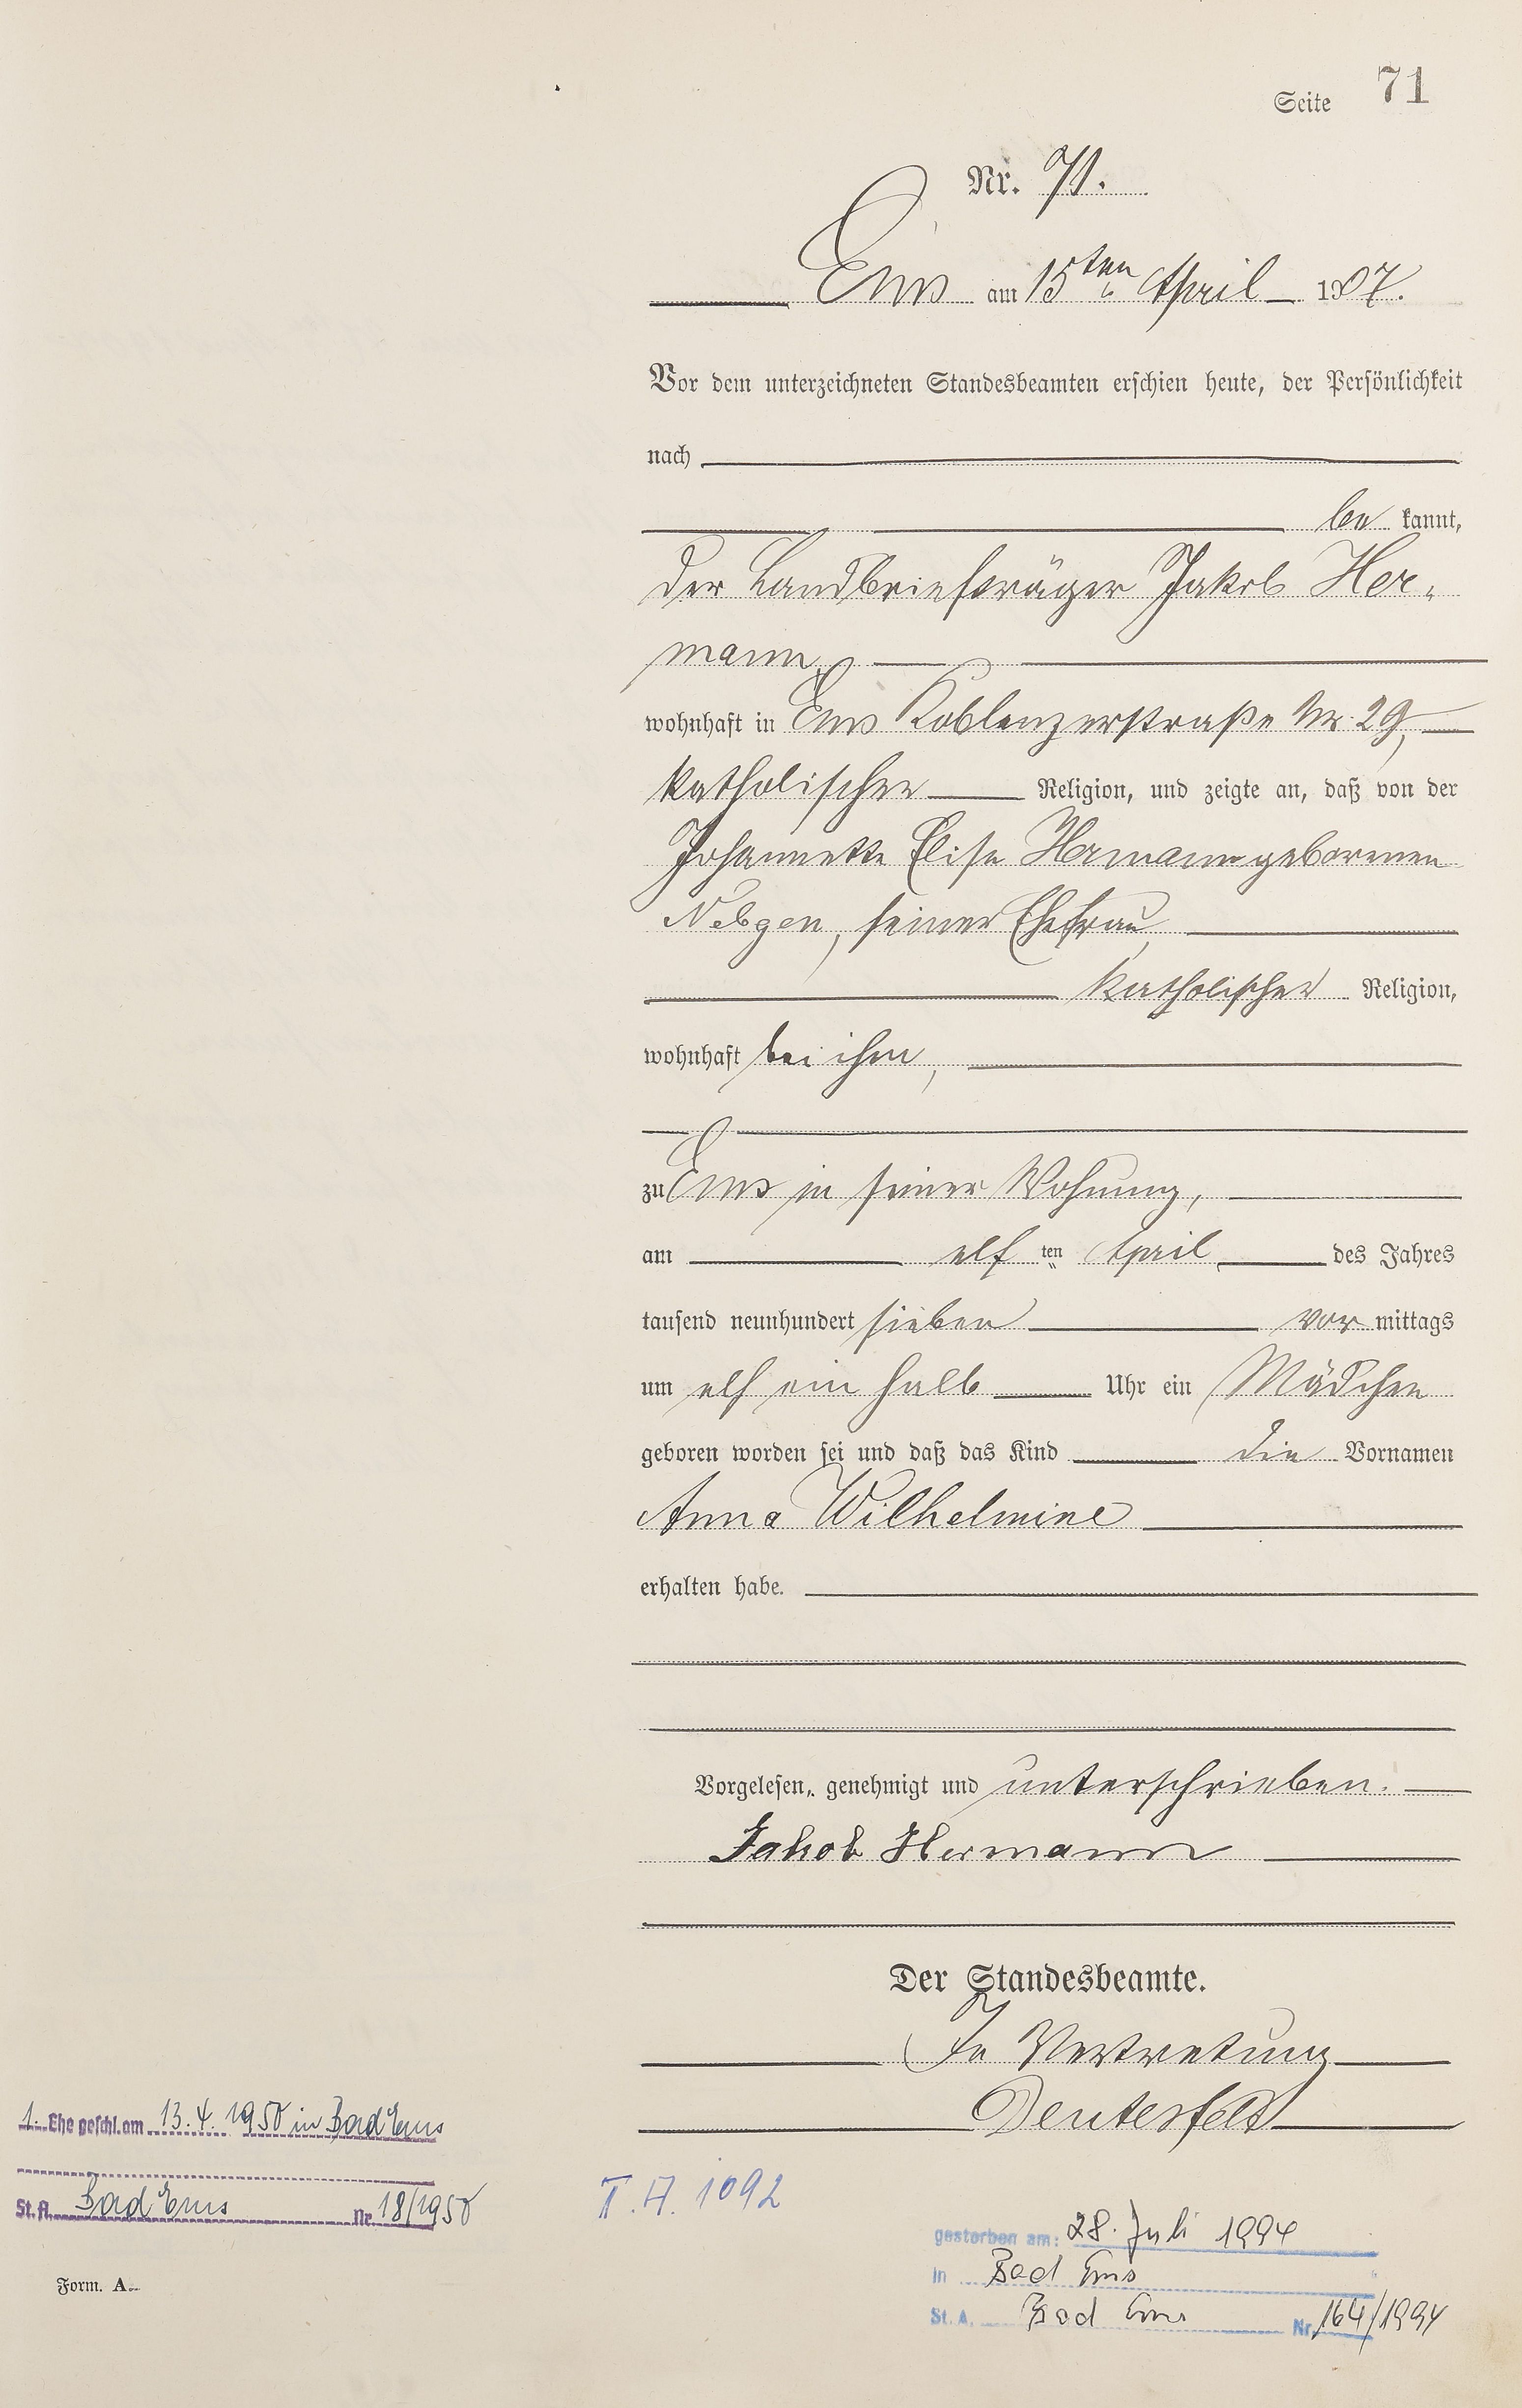 Seite 71
Nr. 71.
Ems am 15ten April 1907.
Vor dem unterzeichneten Standesbeamten erschien heute, der Persönlichkeit
nach
be kannt,
der Landbriefträger Jakob Her-
mann,
wohnhaft in Ems Koblenzerstraße Nr. 29,
katholischer Religion, und zeigte an, daß von der
Johannette Elise Hermann geborenen
Nebgen, seiner Ehefrau,
katholischer Religion,
wohnhaft bei ihm,
zu Ems in seiner Wohnung,
am elf ten April des Jahres
tausend neunhundert sieben vor mittags
um elf ein halb Uhr ein Mädchen
geboren worden sei und daß das Kind die Vornamen
Anna Wilhelmine
erhalten habe.
Vorgelesen, genehmigt und unterschrieben.
Jakob Hermann
Der Standesbeamte.
In Vertretung
Deutesfeld
1. Ehe geschl. am 13.4.1950 in Bad Ems
St. A. Bad Ems Nr. 18/1950
T. A. 1092
gestorben am: 28. Juli 1994
in Bad Ems
St. A. Bad Ems Nr. 164/1994
Form. A.